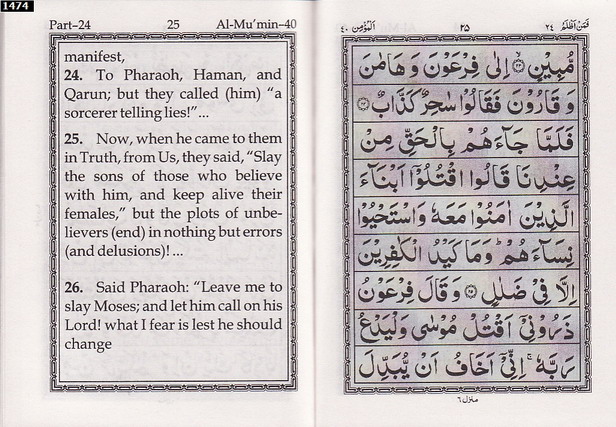 1474
Part–24 25 Al-Mu’min–40
manifest,
24. To Pharaoh, Haman, and
Qarun; but they called (him) “a
sorcerer telling lies!”...
25. Now, when he came to them
in Truth, from Us, they said, “Slay
the sons of those who believe
with him, and keep alive their
females,” but the plots of unbe-
lievers (end) in nothing but errors
(and delusions)! ...
26. Said Pharaoh: “Leave me to
slay Moses; and let him call on his
Lord! what I fear is lest he should
change
فَمَنْ اَظْلَمُ ٢٤ ٢٥ اَلْمُؤْمِن ٤٠
مُّبِيْنٍ ۝٢٣ اِلٰى فِرْعَوْنَ وَهَامٰنَ
وَقَارُوْنَ فَقَالُوْا سٰحِرٌ كَذَّابٌ ۝٢٤
فَلَمَّا جَآءَهُمْ بِالْحَقِّ مِنْ
عِنْدِنَا قَالُوا اقْتُلُوْٓا اَبْنَآءَ
الَّذِيْنَ اٰمَنُوْا مَعَهٗ وَاسْتَحْيُوْا
نِسَآءَهُمْ ؕ وَمَا كَيْدُ الْكٰفِرِيْنَ
اِلَّا فِيْ ضَلٰلٍ ۝٢٥ وَقَالَ فِرْعَوْنُ
ذَرُوْنِيْٓ اَقْتُلْ مُوْسٰى وَلْيَدْعُ
رَبَّهٗ ۚ اِنِّيْٓ اَخَافُ اَنْ يُّبَدِّلَ
منزل ٦